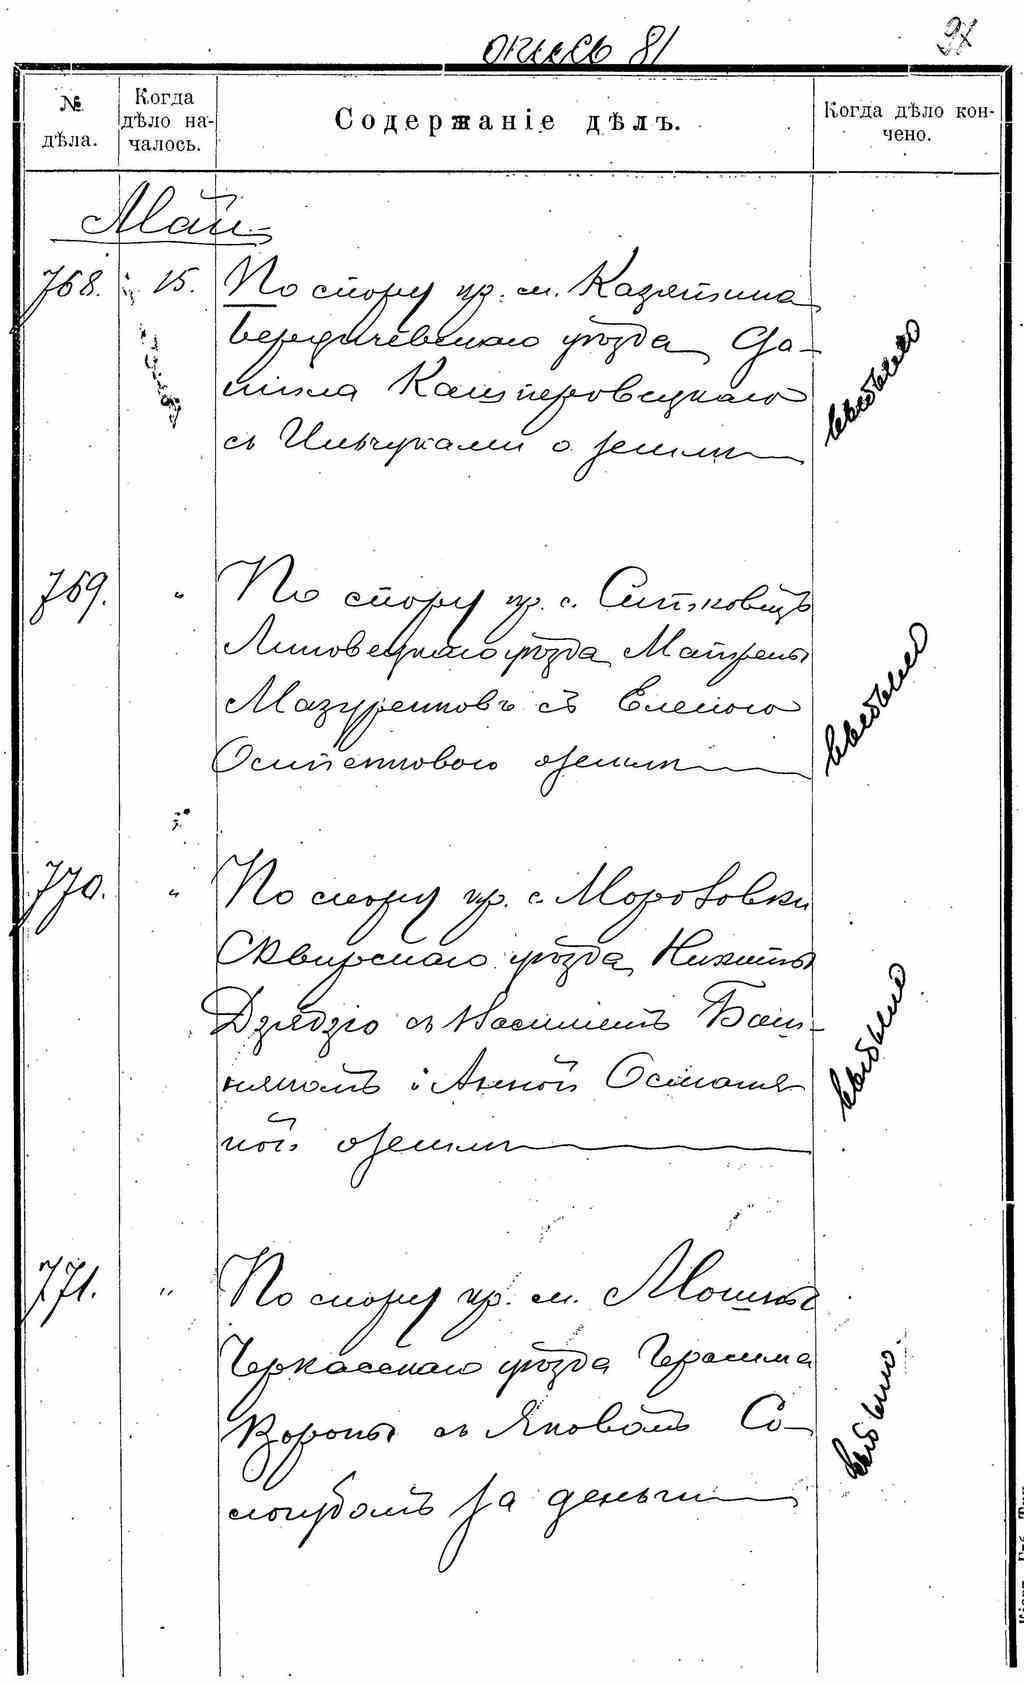 опись 81
№ дѣла.
Когда дѣло на-
чалось.
Содержаніе дѣлъ.
Когда дѣло кон-
чено.
Май
768. 15. По спору кр. м. Казятина
Бердичевскаго уѣзда Да-
нила Кашперовецкаго
съ Ильчуками о землѣ
выбыло
769. " По спору кр. с. Ситковецъ
Липовецкаго уѣзда Матрены
Мазуренковъ съ Еленою
Осипенковою о землѣ
выбыло
770. " По спору кр. с. Морозовки
Сквирскаго уѣзда Никиты
Дзядзю съ Василіемъ Баш-
някомъ и Анной
о землѣ
выбыло
771. " По спору кр. м. Мошны
Черкасскаго уѣзда Герасима
Вороны съ Яковомъ Со-
логубомъ за деньги
выбыло.